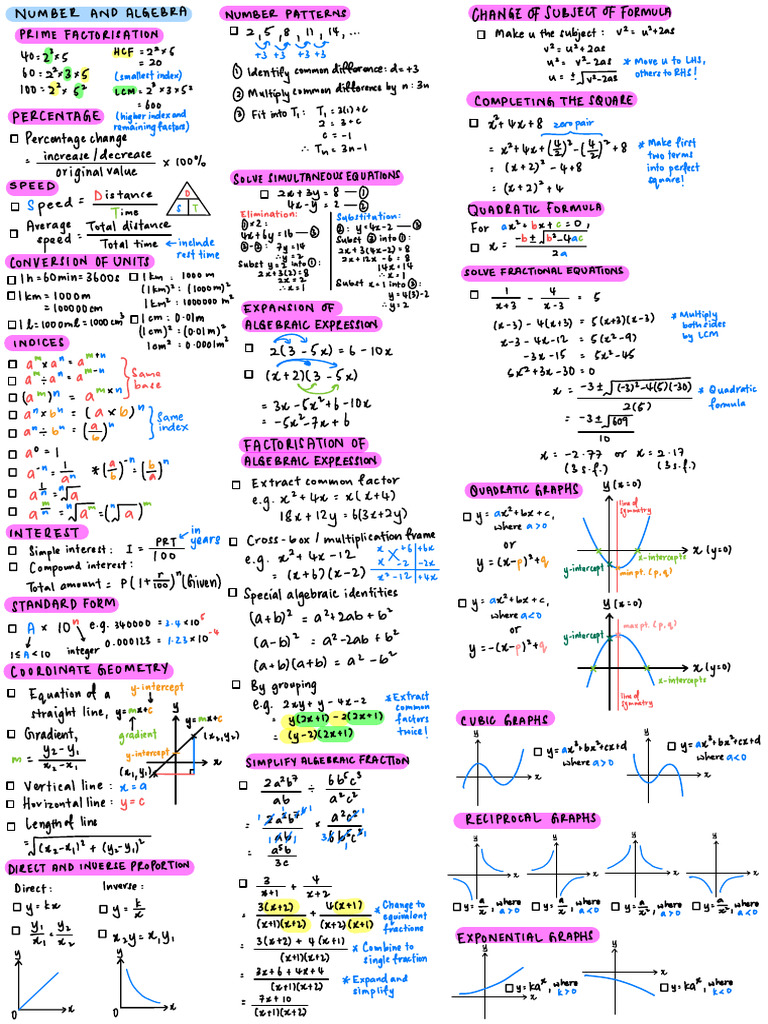 NUMBER AND ALGEBRA
PRIME FACTORISATION
40 = 2³ × 5
60 = 2² × 3 × 5
100 = 2² × 5²
HCF = 2² × 5
= 20
(smallest index)
LCM = 2³ × 3 × 5²
= 600
(higher index and
remaining factors)
PERCENTAGE
Percentage change
= increase / decrease / original value × 100%
SPEED
Speed = Distance / Time
D
S T
Average speed = Total distance / Total time
← include rest time
CONVERSION OF UNITS
1 h = 60 min = 3600s
1 km = 1000 m
= 100000 cm
1 l = 1000 ml = 1000 cm³
1 km = 1000 m
(1 km)² = (1000 m)²
1 km² = 1000000 m²
1 cm = 0.01m
(1 cm)² = (0.01m)²
1 cm² = 0.0001m²
INDICES
aᵐ × aⁿ = aᵐ⁺ⁿ
aᵐ ÷ aⁿ = aᵐ⁻ⁿ
(aᵐ)ⁿ = aᵐˣⁿ
Same base
aⁿ × bⁿ = (a × b)ⁿ
aⁿ ÷ bⁿ = (a/b)ⁿ
Same index
a⁰ = 1
a⁻ⁿ = 1/aⁿ * (a/b)⁻ⁿ = (b/a)ⁿ
a^(1/n) = ⁿ√a
a^(m/n) = ⁿ√aᵐ = (ⁿ√a)ᵐ
INTEREST
Simple interest : I = PRT/100
in years
Compound interest :
Total amount = P(1 + r/100)ⁿ (Given)
STANDARD FORM
A × 10ⁿ e.g. 340000 = 3.4 × 10⁵
1 ≤ A < 10 integer 0.000123 = 1.23 × 10⁻⁴
COORDINATE GEOMETRY
Equation of a straight line, y = mx + c
y-intercept
gradient
Gradient,
m = (y₂ - y₁)/(x₂ - x₁)
y
y = mx + c
(x₂, y₂)
y-intercept
(x₁, y₁)
x
Vertical line : x = a
Horizontal line : y = c
Length of line
= √((x₂ - x₁)² + (y₂ - y₁)²)
DIRECT AND INVERSE PROPORTION
Direct :
y = kx
y₁/x₁ = y₂/x₂
y
0 x
Inverse :
y = k/x
x₂y = x₁y₁
y
0 x
NUMBER PATTERNS
2, 5, 8, 11, 14, ...
+3 +3 +3 +3
① Identify common difference : d = +3
② Multiply common difference by n : 3n
③ Fit into T₁ : T₁ = 3(1) + c
2 = 3 + c
c = -1
∴ Tₙ = 3n - 1
SOLVE SIMULTANEOUS EQUATIONS
2x + 3y = 8 — ①
4x - y = 2 — ②
Elimination :
① × 2 :
4x + 6y = 16 — ③
③ - ② : 7y = 14
∴ y = 2
Subst y = 2 into ① :
2x + 3(2) = 8
2x = 2
∴ x = 1
Substitution :
② : y = 4x - 2 — ③
Subst ③ into ① :
2x + 3(4x - 2) = 8
2x + 12x - 6 = 8
14x = 14
∴ x = 1
Subst x = 1 into ③ :
y = 4(3) - 2
∴ y = 2
EXPANSION OF
ALGEBRAIC EXPRESSION
2(3 - 5x) = 6 - 10x
(x + 2)(3 - 5x)
= 3x - 5x² + 6 - 10x
= -5x² - 7x + 6
FACTORISATION OF
ALGEBRAIC EXPRESSION
Extract common factor
e.g. x² + 4x = x(x + 4)
18x + 12y = 6(3x + 2y)
Cross-box / multiplication frame
e.g. x² + 4x - 12
= (x + 6)(x - 2)
x +6 +6x
x -2 -2x
x² -12 +4x
Special algebraic identities
(a + b)² = a² + 2ab + b²
(a - b)² = a² - 2ab + b²
(a + b)(a + b) = a² - b²
By grouping
e.g. 2xy + y - 4x - 2
= y(2x + 1) - 2(2x + 1)
= (y - 2)(2x + 1)
* Extract common factors twice!
SIMPLIFY ALGEBRAIC FRACTION
2a²b⁷/ab ÷ 6b⁵c³/a²c²
= 2a²b⁷/ab × a²c²/6b⁵c³
= a³b/3c
3/(x+1) + 4/(x+2)
= 3(x+2)/(x+1)(x+2) + 4(x+1)/(x+2)(x+1)
* Change to equivalent fractions
= (3(x+2) + 4(x+1))/(x+1)(x+2)
* Combine to single fraction
= (3x + 6 + 4x + 4)/(x+1)(x+2)
* Expand and simplify
= (7x + 10)/(x+1)(x+2)
CHANGE OF SUBJECT OF FORMULA
Make u the subject : v² = u² + 2as
v² = u² + 2as
u² = v² - 2as
u = ±√(v² - 2as)
* Move u to LHS, others to RHS!
COMPLETING THE SQUARE
x² + 4x + 8 zero pair
= x² + 4x + (4/2)² - (4/2)² + 8
= (x + 2)² - 4 + 8
= (x + 2)² + 4
* Make first two terms into perfect square!
QUADRATIC FORMULA
For ax² + bx + c = 0,
x = (-b ± √(b² - 4ac))/2a
SOLVE FRACTIONAL EQUATIONS
1/(x+3) - 4/(x-3) = 5
(x-3) - 4(x+3) = 5(x+3)(x-3)
x - 3 - 4x - 12 = 5(x² - 9)
-3x - 15 = 5x² - 45
5x² + 3x - 30 = 0
* Multiply both sides by LCM
x = (-3 ± √((-3)² - 4(5)(-30)))/2(5)
* Quadratic formula
= (-3 ± √609)/10
x = -2.77 or x = 2.17
(3 s.f.) (3 s.f.)
QUADRATIC GRAPHS
y = ax² + bx + c,
where a > 0
or
y = (x - p)² + q
y (x = 0)
line of symmetry
x (y = 0)
x-intercepts
y-intercept
min pt. (p, q)
y = ax² + bx + c,
where a < 0
or
y = -(x - p)² + q
y (x = 0)
max pt. (p, q)
y-intercept
x (y = 0)
x-intercepts
line of symmetry
CUBIC GRAPHS
y
x
y = ax³ + bx² + cx + d
where a > 0
y
x
y = ax³ + bx² + cx + d
where a < 0
RECIPROCAL GRAPHS
y
x
y = a/x, where a > 0
y
x
y = a/x, where a < 0
y
x
y = a/x², where a > 0
y
x
y = a/x², where a < 0
EXPONENTIAL GRAPHS
y
x
y = kaˣ, where k > 0
y
x
y = kaˣ, where k < 0